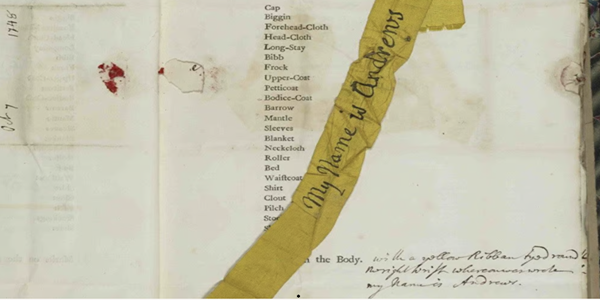 1748
Cap
Biggin
Forehead-Cloth
Head-Cloth
Long-Stay
Bibb
Frock
Upper-Coat
Petticoat
Bodice-Coat
Barrow
Mantle
Sleeves
Blanket
Neckcloth
Roller
Bed
Waistcoat
Shirt
Clout
Pilch
My Name is Andrews
the Body. with a yellow Ribban tyed round
the right Wrist whereon was wrote
my Name is Andrews.